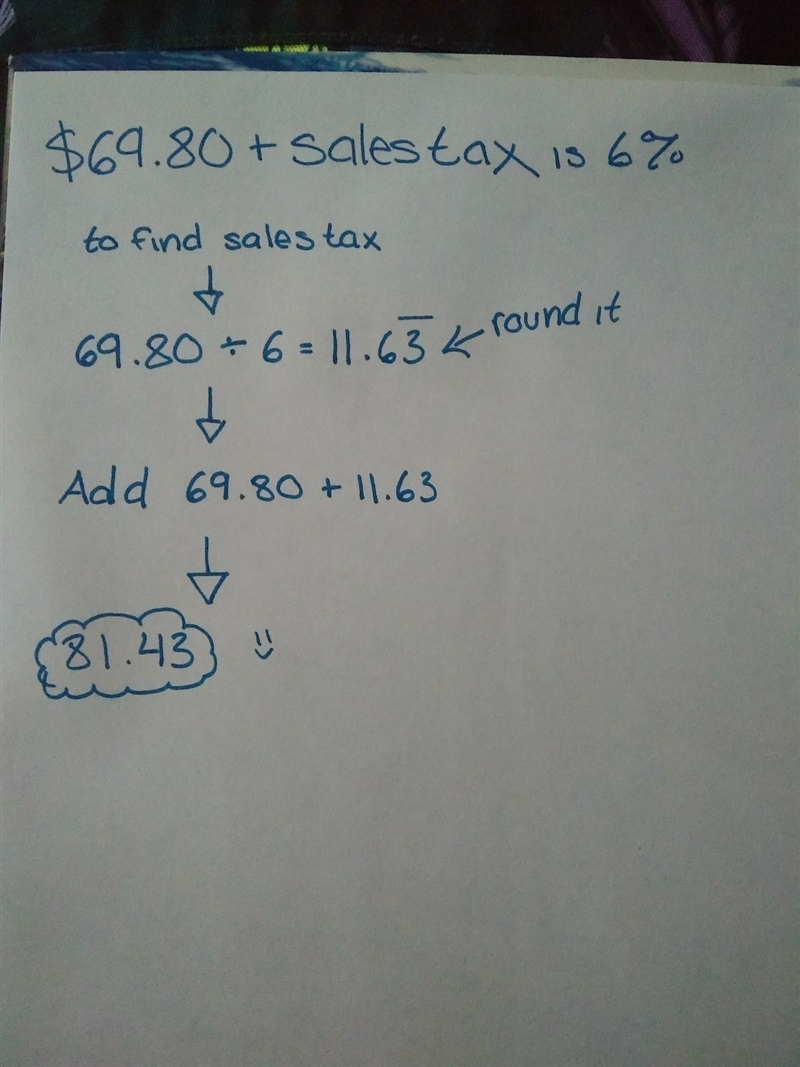 $69.80 + sales tax is 6%
to find sales tax
↓
69.80 ÷ 6 = 11.63̅ ← round it
↓
Add 69.80 + 11.63
↓
81.43 :)